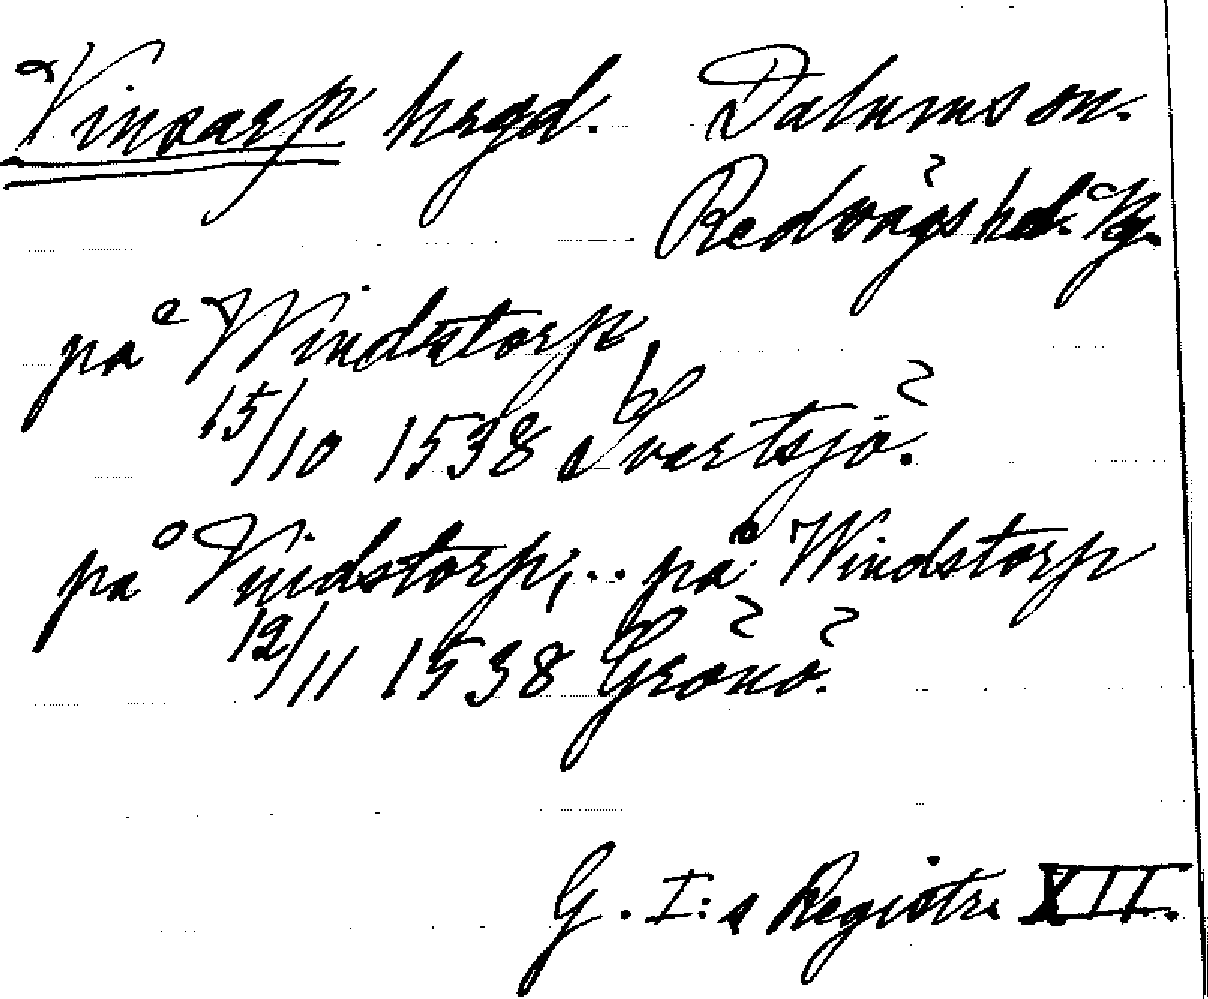 Vinsarp hrgd. Dalums sn.
Redvägs hd. Vg.
på Windstorp
15/10 1538 Svartsjö.
på Vindstorp, .. på Windstorp
12/11 1538 Grönö.
G. I:s Registr. XII.